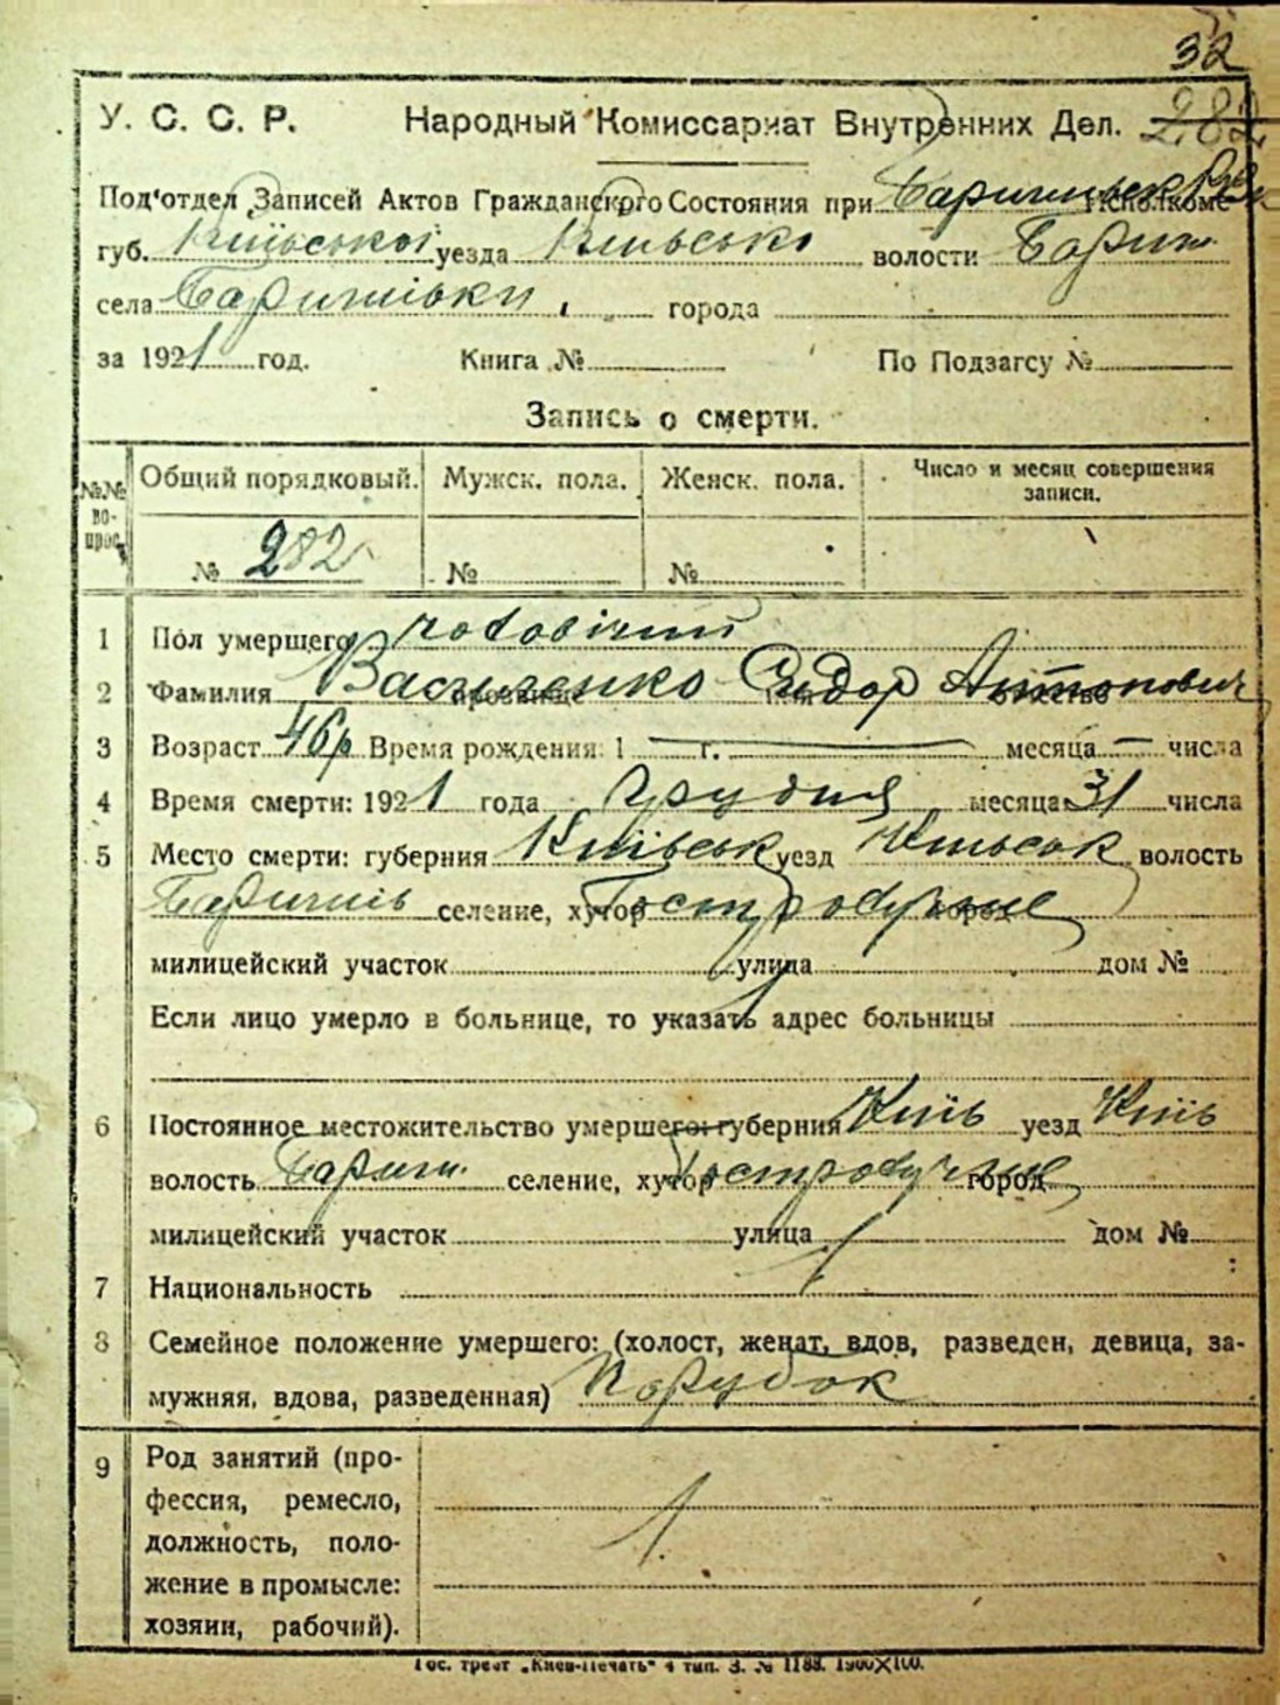 32
У. С. С. Р. Народный Комиссариат Внутренних Дел. 282
Под'отдел Записей Актов Гражданского Состояния при Баришівськ Исполкоме
губ. Київської уезда Київсько волости Бариш.
села Баришівки, города
за 1921 год. Книга № По Подзагсу №
Запись о смерти.
№№ вопрос. Общий порядковый. Мужск. пола. Женск. пола. Число и месяц совершения записи.
№ 282 № №
1 Пол умершего чоловічий
2 Фамилия Василенко прозвище имя Сидор отчество Антонович
3 Возраст 46р Время рождения: 1 — г. — месяца — числа
4 Время смерти: 1921 года грудня месяца 31 числа
5 Место смерти: губерния Київськ уезд Київськ волость
Баришів селение, хутор Гостролуччє город
милицейский участок улица дом №
Если лицо умерло в больнице, то указать адрес больницы
6 Постоянное местожительство умершего: губерния Київ уезд Київ
волость Бариш. селение, хутор Гостролуччє город
милицейский участок улица дом №
7 Национальность
8 Семейное положение умершего: (холост, женат, вдов, разведен, девица, за-
мужняя, вдова, разведенная) Парубок
9 Род занятий (про-
фессия, ремесло,
должность, поло-
жение в промысле:
хозяин, рабочий).
Гос. трест „Киев-Печать" 4 тип. З. № 1188. 1900×100.